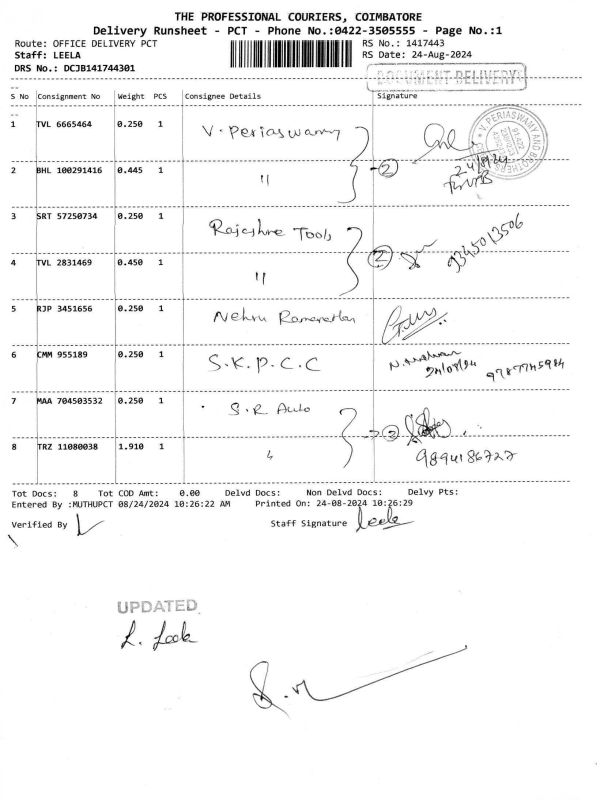 THE PROFESSIONAL COURIERS, COIMBATORE
Delivery Runsheet - PCT - Phone No.:0422-3505555 - Page No.:1
Route: OFFICE DELIVERY PCT RS No.: 1417443
Staff: LEELA RS Date: 24-Aug-2024
DRS No.: DCJB141744301
DOCUMENT DELIVERY
S No Consignment No Weight PCS Consignee Details Signature
1 TVL 6665464 0.250 1 V. Periaswamy
V. PERIASWAMY AND BROTHERS
24/8/24
2 BHL 100291416 0.445 1 " 2
3 SRT 57250734 0.250 1 Rajashree Tools 9345013506
4 TVL 2831469 0.450 1 " 2
5 RJP 3451656 0.250 1 Nehru
6 CMM 955189 0.250 1 S.K.P.C.C
24/08/24 9787745984
7 MAA 704503532 0.250 1 S.R Auto 2
8 TRZ 11080038 1.910 1 " 9894186727
Tot Docs: 8 Tot COD Amt: 0.00 Delvd Docs: Non Delvd Docs: Delvy Pts:
Entered By :MUTHUPCT 08/24/2024 10:26:22 AM Printed On: 24-08-2024 10:26:29
Verified By Staff Signature Leela
UPDATED
L. Leela